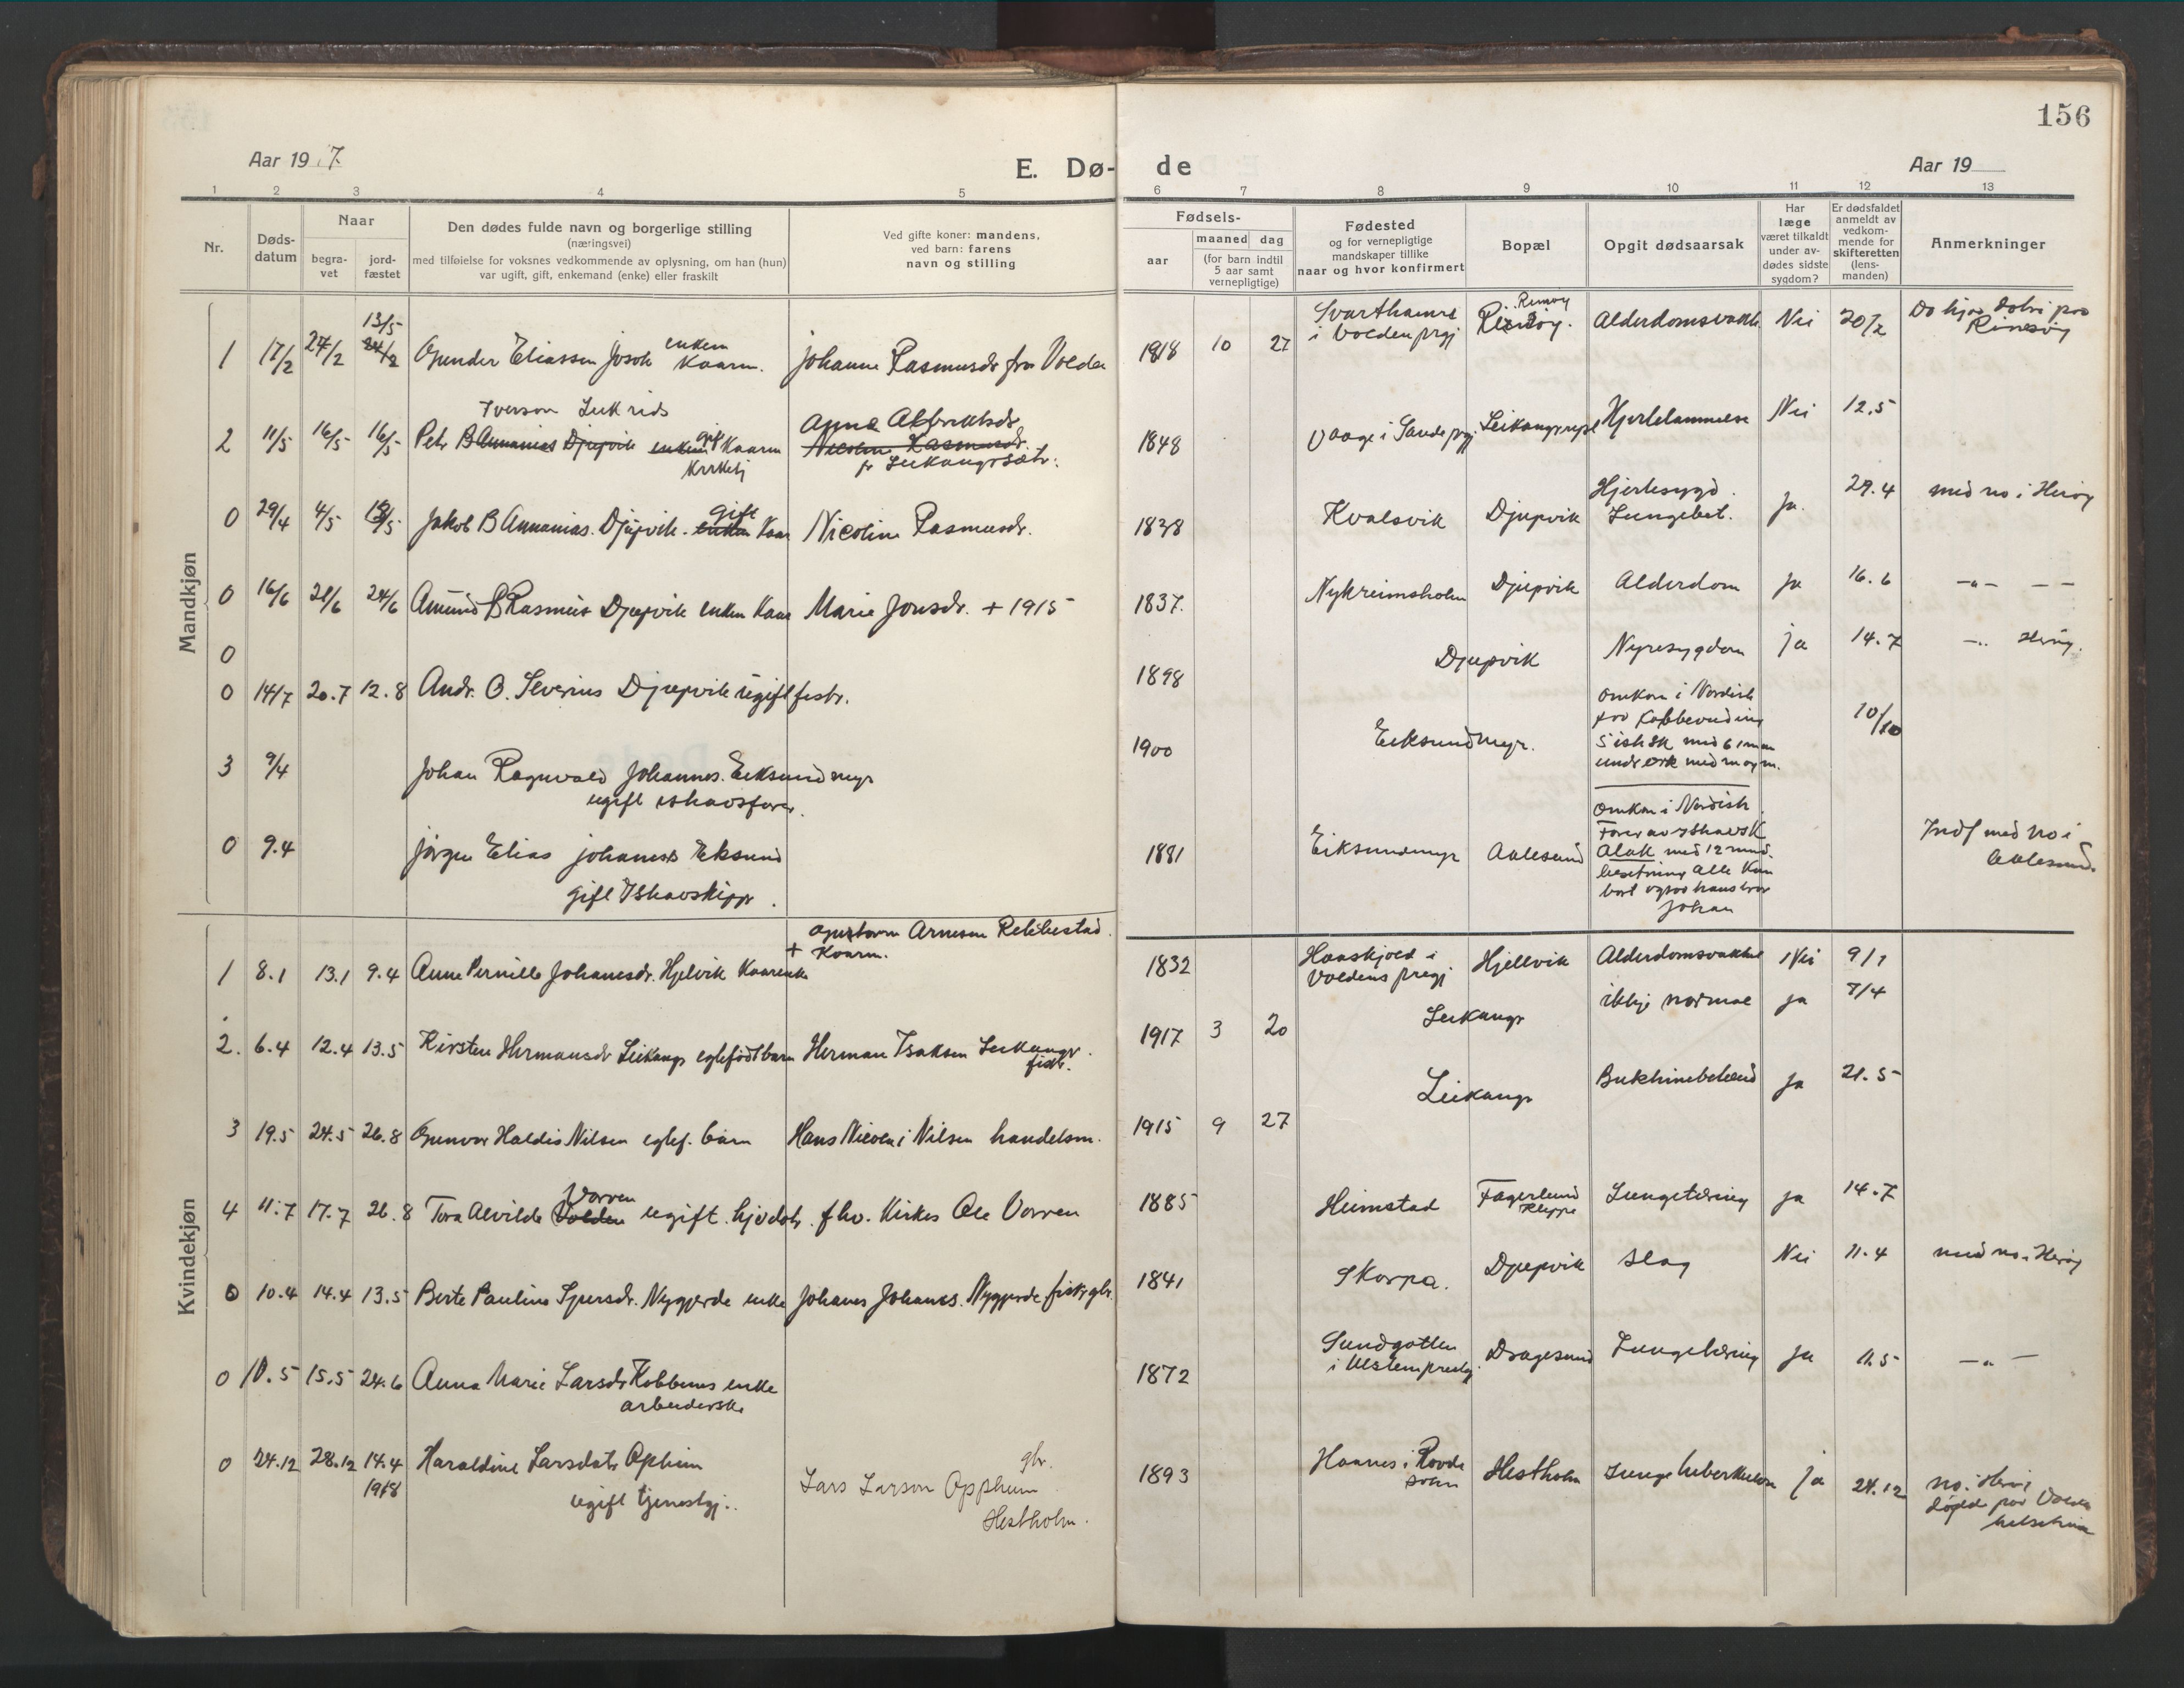 156
Aar 1917.
E. Dø-
de
Aar 19
1 2 3 4 5 6 7 8 9 10 11 12 13
Nr.
Døds-
datum
Naar
begra-
vet
jord-
fæstet
Den dødes fulde navn og borgerlige stilling
(næringsvei)
med tilføielse for voksnes vedkommende av oplysning, om han (hun)
var ugift, gift, enkemand (enke) eller fraskilt
Ved gifte koner: mandens,
ved barn: farens
navn og stilling
Fødsels-
aar
maaned dag
(for barn indtil
5 aar samt
vernepligtige)
Fødested
og for vernepligtige
mandskaper tillike
naar og hvor konfirmert
Bopæl
Opgit dødsaarsak
Har
læge
været tilkaldt
under av-
dødes sidste
sygdom?
Er dødsfaldet
anmeldt av
vedkom-
mende for
skifteretten
(lens-
manden)
Anmerkninger
Mandkjøn
13/5
1 17/2 27/2 24/2 Eliassen enkem Kaarm. Johanne Rasmusdr fra Volden 1818 10 27
Svarthamre
i Volden prgj
Rimøy
Alderdomsvakh. Nei 20/2
Rimøy
Iverson
2 11/5 16/5 16/5 Petr B Annanias Djupvik enkem gift Kaarm
Anna
Nicoline Rasmusdr.
1848 Vaage i Sande prgj Hjertelammelse Nei 12.5
0 29/4 4/5 Jakob B Annanias. Djupvik. enkem gift Kaar Nicoline Rasmusdr. 1838 Kvalsvik Djupvik
Hjertesygd.
Lungebet.
Ja. 29.4 med no i Herøy
0 16/6 21/6 24/6 Amund B Rasmus Djupvik enkem Kaar Marie Jonsdr. + 1915 1837. Djupvik Alderdom ja 16.6 -"- - -
0
0 14/7 20.7 12.8 Andr. O. Severius Djupvik ugift fiskr. 1898 Djupvik Nyresygdom ja 14.7 -" Herøy.
3 9/4 Johan Ragnvald Johannes. Eiksundmyr
ugift ishavsfarer.
1900 Eiksundmyr.
omkom i Nordish
10/10
0 9.4 Jørgen Elias Johannes Eksund
gift Ishavskippr.
1881 Eiksundmyr Aalesund
omkom i Nordish
Fører av Ishavsk
Alak med 12 mand.
besetning alle kom
bort ogsaa hans bror
Johan
Indf med no i
Aalesund.
Kvindekjøn
Arnesen Rebbestad.
+ Kaarm.
1 8.1 13.1 9.4 Anne Pernille Johanesdr. Hjelvik Kaarenke 1832
Haaskjold i
Voldens pregj
Hjellvik Alderdomsvakhet Nei 9/1
2. 6.4 12.4 13.5 Kirsten Hermansdr Leikangr egtefødt barn Herman Isaksen Leikangr.
fiskr.
1917 3 20 Leikangr ikkje normal ja 7/4
3 19.5 24.5 26.8 Gunvor Haldis Nilsen egtef. barn Hans Nicolai Nilsen handelsm. 1915 9 27 Leikangr Bukhinebetænd ja 21.5
4 11.7 17.7 26.8 Tora Alvilde Volden Vorren ugift. fhv. Kirkes Ole Vorren 1885 Heimstad Fagerlund
Kleppe
Lungetæring ja 14.7
0 10.4 14.4 13.5 Berte Pauline Sjursdr. Nygjerde enke Johanes Johanes. Nygjerde fiskr gbr. 1841 Skorpa. Djupvik slag Nei 11.4 med no i Herøy
0 10.5 15.5 24.6 Anna Marie Larsdr Kobbenes enke
arbeiderske
1872 Sundgotten
i Ulstein prestgj.
Dragesund Lungetæring ja 11.5 -"-
0 24.12 28.12 14.4
1918
Haraldine Larsdatr Ophim
ugift tjenestgj..
gbr.
Lars Larson Oppheim
Hestholm.
1893 Haanes i Rovde
sokn
Hestholm Lungetuberkulose ja 24.12
no. i Herøy